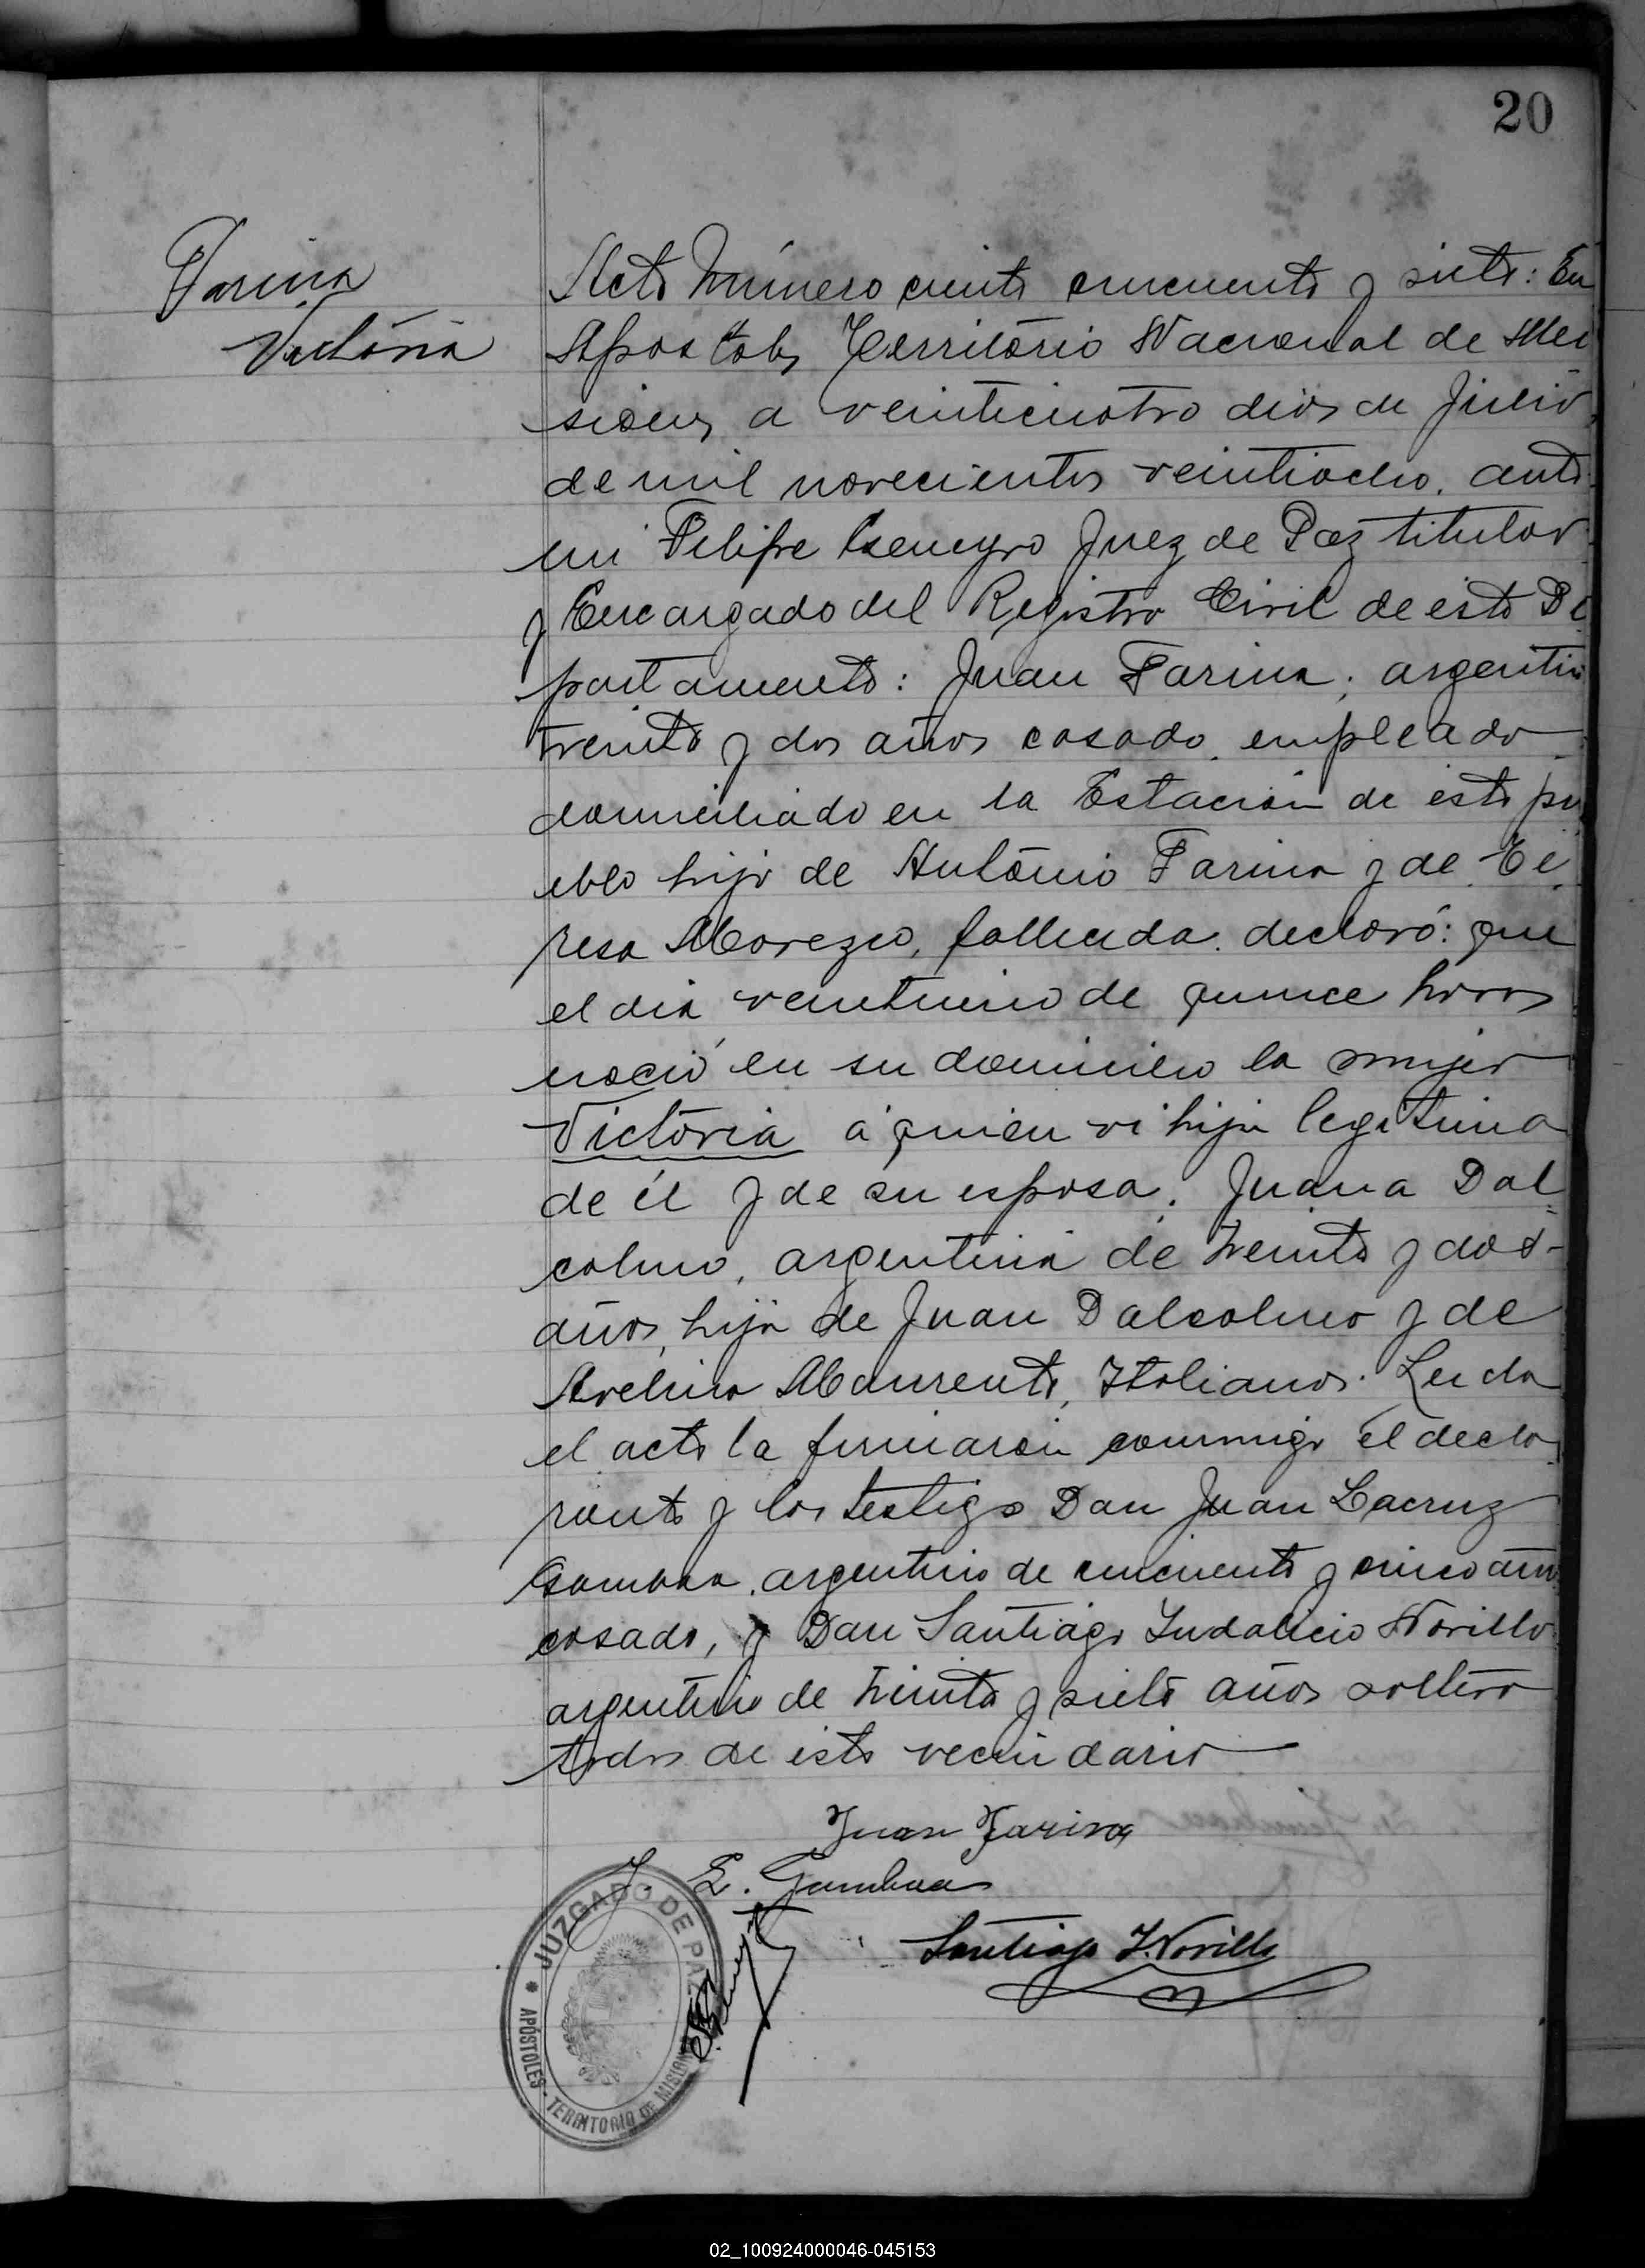 20
Farina
Victoria
Acta Número ciento cincuenta y siete: En
Apostoles Territorio Nacional de Mi
siones, a veinticuatro dias de Julio
de mil novecientos veintiocho, ante
mi Felipe Juez de Paz titular
y Encargado del Registro Civil de este De
partamento: Juan Farina, argentin
treinta y dos años casado, empleado
domiciliado en la Estación de este pu
eblo hijo de Antonio Farina y de Te
resa fallecida, declaró: que
el dia veintiuno de quince horas
nació en su domicilio la mujer
Victoria a quien vi hija legitima
de él y de su esposa, Juana Dal
colmo, argentina de treinta y dos
años, hija de Juan Dalcolmo y de
Avelina Italianos. Leida
el acta la firmaron conmigo el decla
rante y los testigos Don Juan Lacruz
Gamboa, argentino de cincuenta y cinco años
casado, y Don Santiago Indalicio Norillo
argentino de treinta y siete años soltero
todos de este vecindario
Juan Farina
J. L. Gamboa
Santiago I. Norillo
JUZGADO DE PAZ
APÓSTOLES - TERRITORIO DE MISIONES
02_100924000046-045153